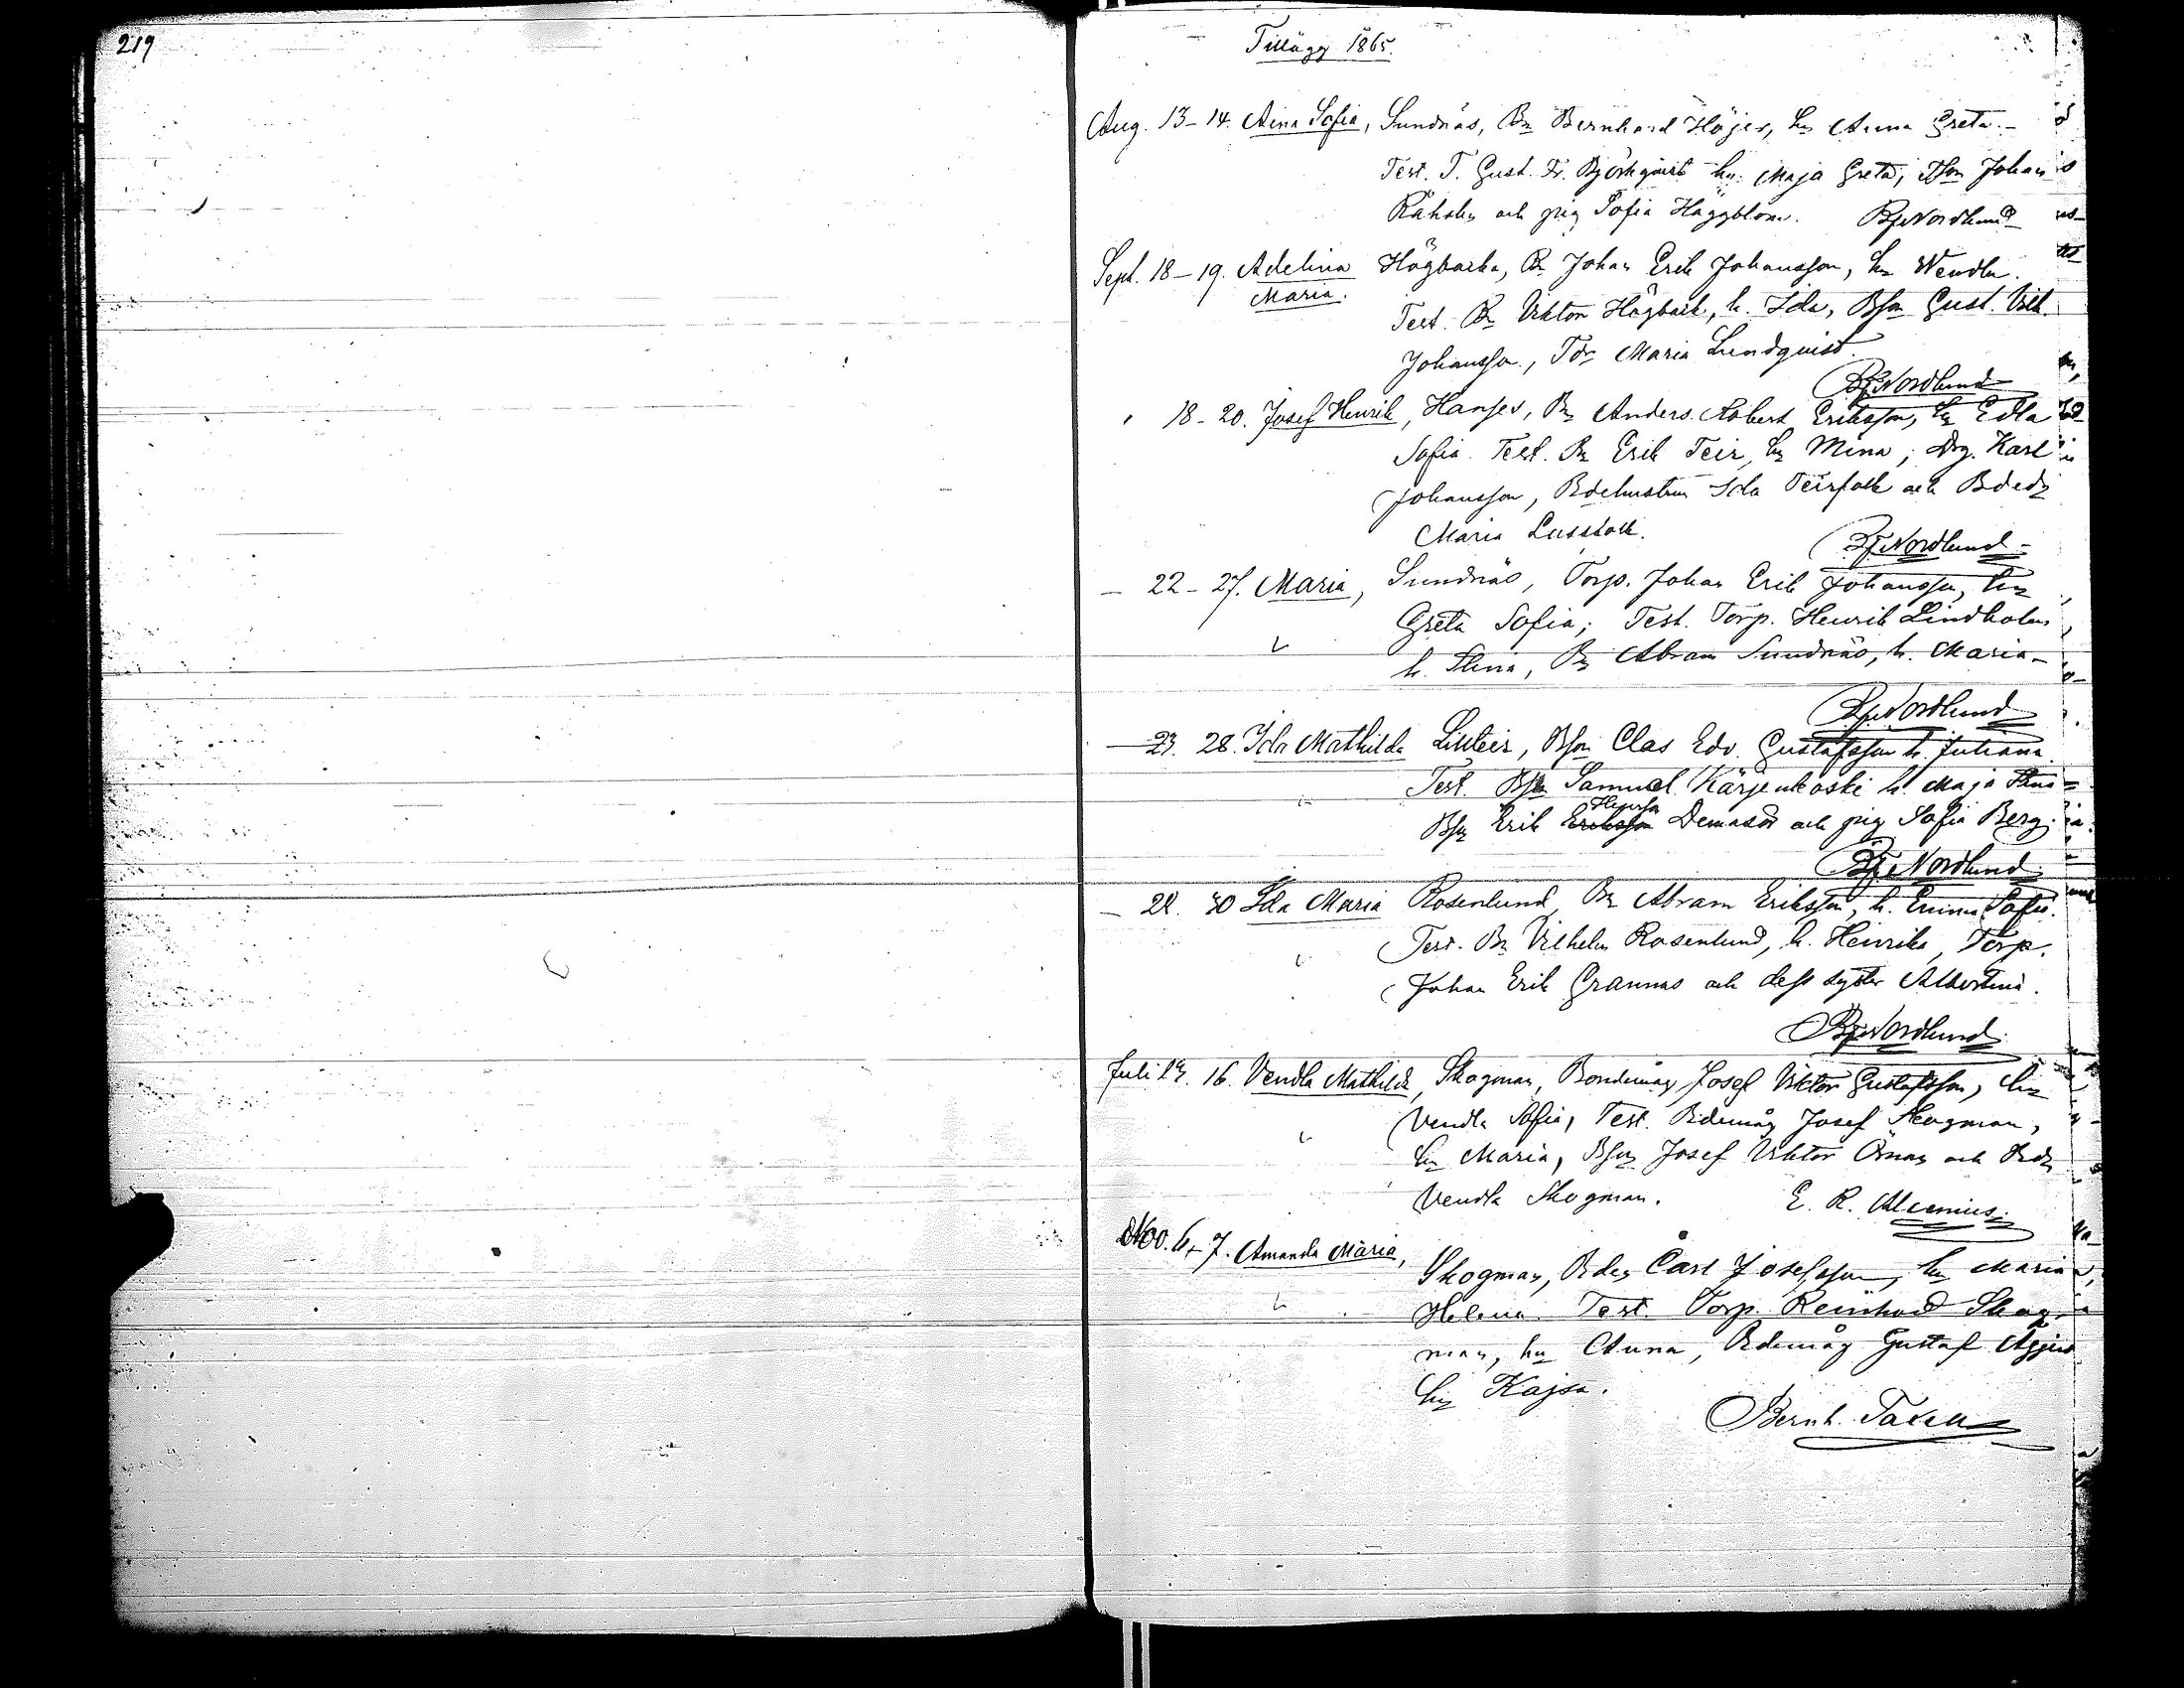 219
Tillägg 1865.
Aug. 13-14. Aina Sofia, Sundnäs, Bn Bernhard Höjer, hu Anna Greta.-
Test. T. Gust. Fr. Björkqvist hu. Maja Greta, Bson Johan
och pig Sofia Häggblom. Nordlund
Sept. 18-19. Adelina Högbacka, Bn Johan Erik Johansson, hu Wendla.
Maria.
Test. Bn Viktor Högback, h. Ida, Bson Gust. Vilh.
Johansson, Tdr Maria Lundqvist.
Nordlund
" 18-20. Josef Henrik, Hanses, Bn Anders Robert Eriksson, hu Edla
Sofia. Test. Bn Erik Teir, hu Mina; Drg. Karl
Johansson, Bdehustru Ida Teirfolk och
Maria
Nordlund
- 22-27. Maria, Sundnäs, Torp. Johan Erik Johansson, hu
Greta Sofia; Test. Torp. Henrik Lindholm
h. Stina, Bn Abram Sundnäs, h. Maria-
Nordlund
- 23. 28. Ida Mathilda Lillteir, Bson Clas Edv. Gustafsson h. Juliana
Test. Samuel Kärjenkoski h. Maja Stina
Erik Eriksson Demasd och pig Sofia Berg.
Nordlund
- 22. 30 Ida Maria Rosenlund Bn Abram Eriksson, h. Emma Sofia.
Test. Bn Vilhelm Rosenlund, h. Henrika, Torp.
Johan Erik Grannas och dess syster Albertina.
Nordlund
Juli 16. Vendla Mathilda, Skogman, Bondemåg Josef Viktor Gustafsson, hu
Vendla Sofia, Test. Bdemåg Josef Skogman,
hu Maria, Josef Viktor och
Vendla Skogman. E. R. Alcenius.
Nov. 6+7. Amanda Maria, Skogman, Carl Josefsson, hu Maria
Helena. Test. Torp. Reinhord Skog-
man, hu Anna, Bdemåg Gustaf
hu Kajsa.
Bernh.